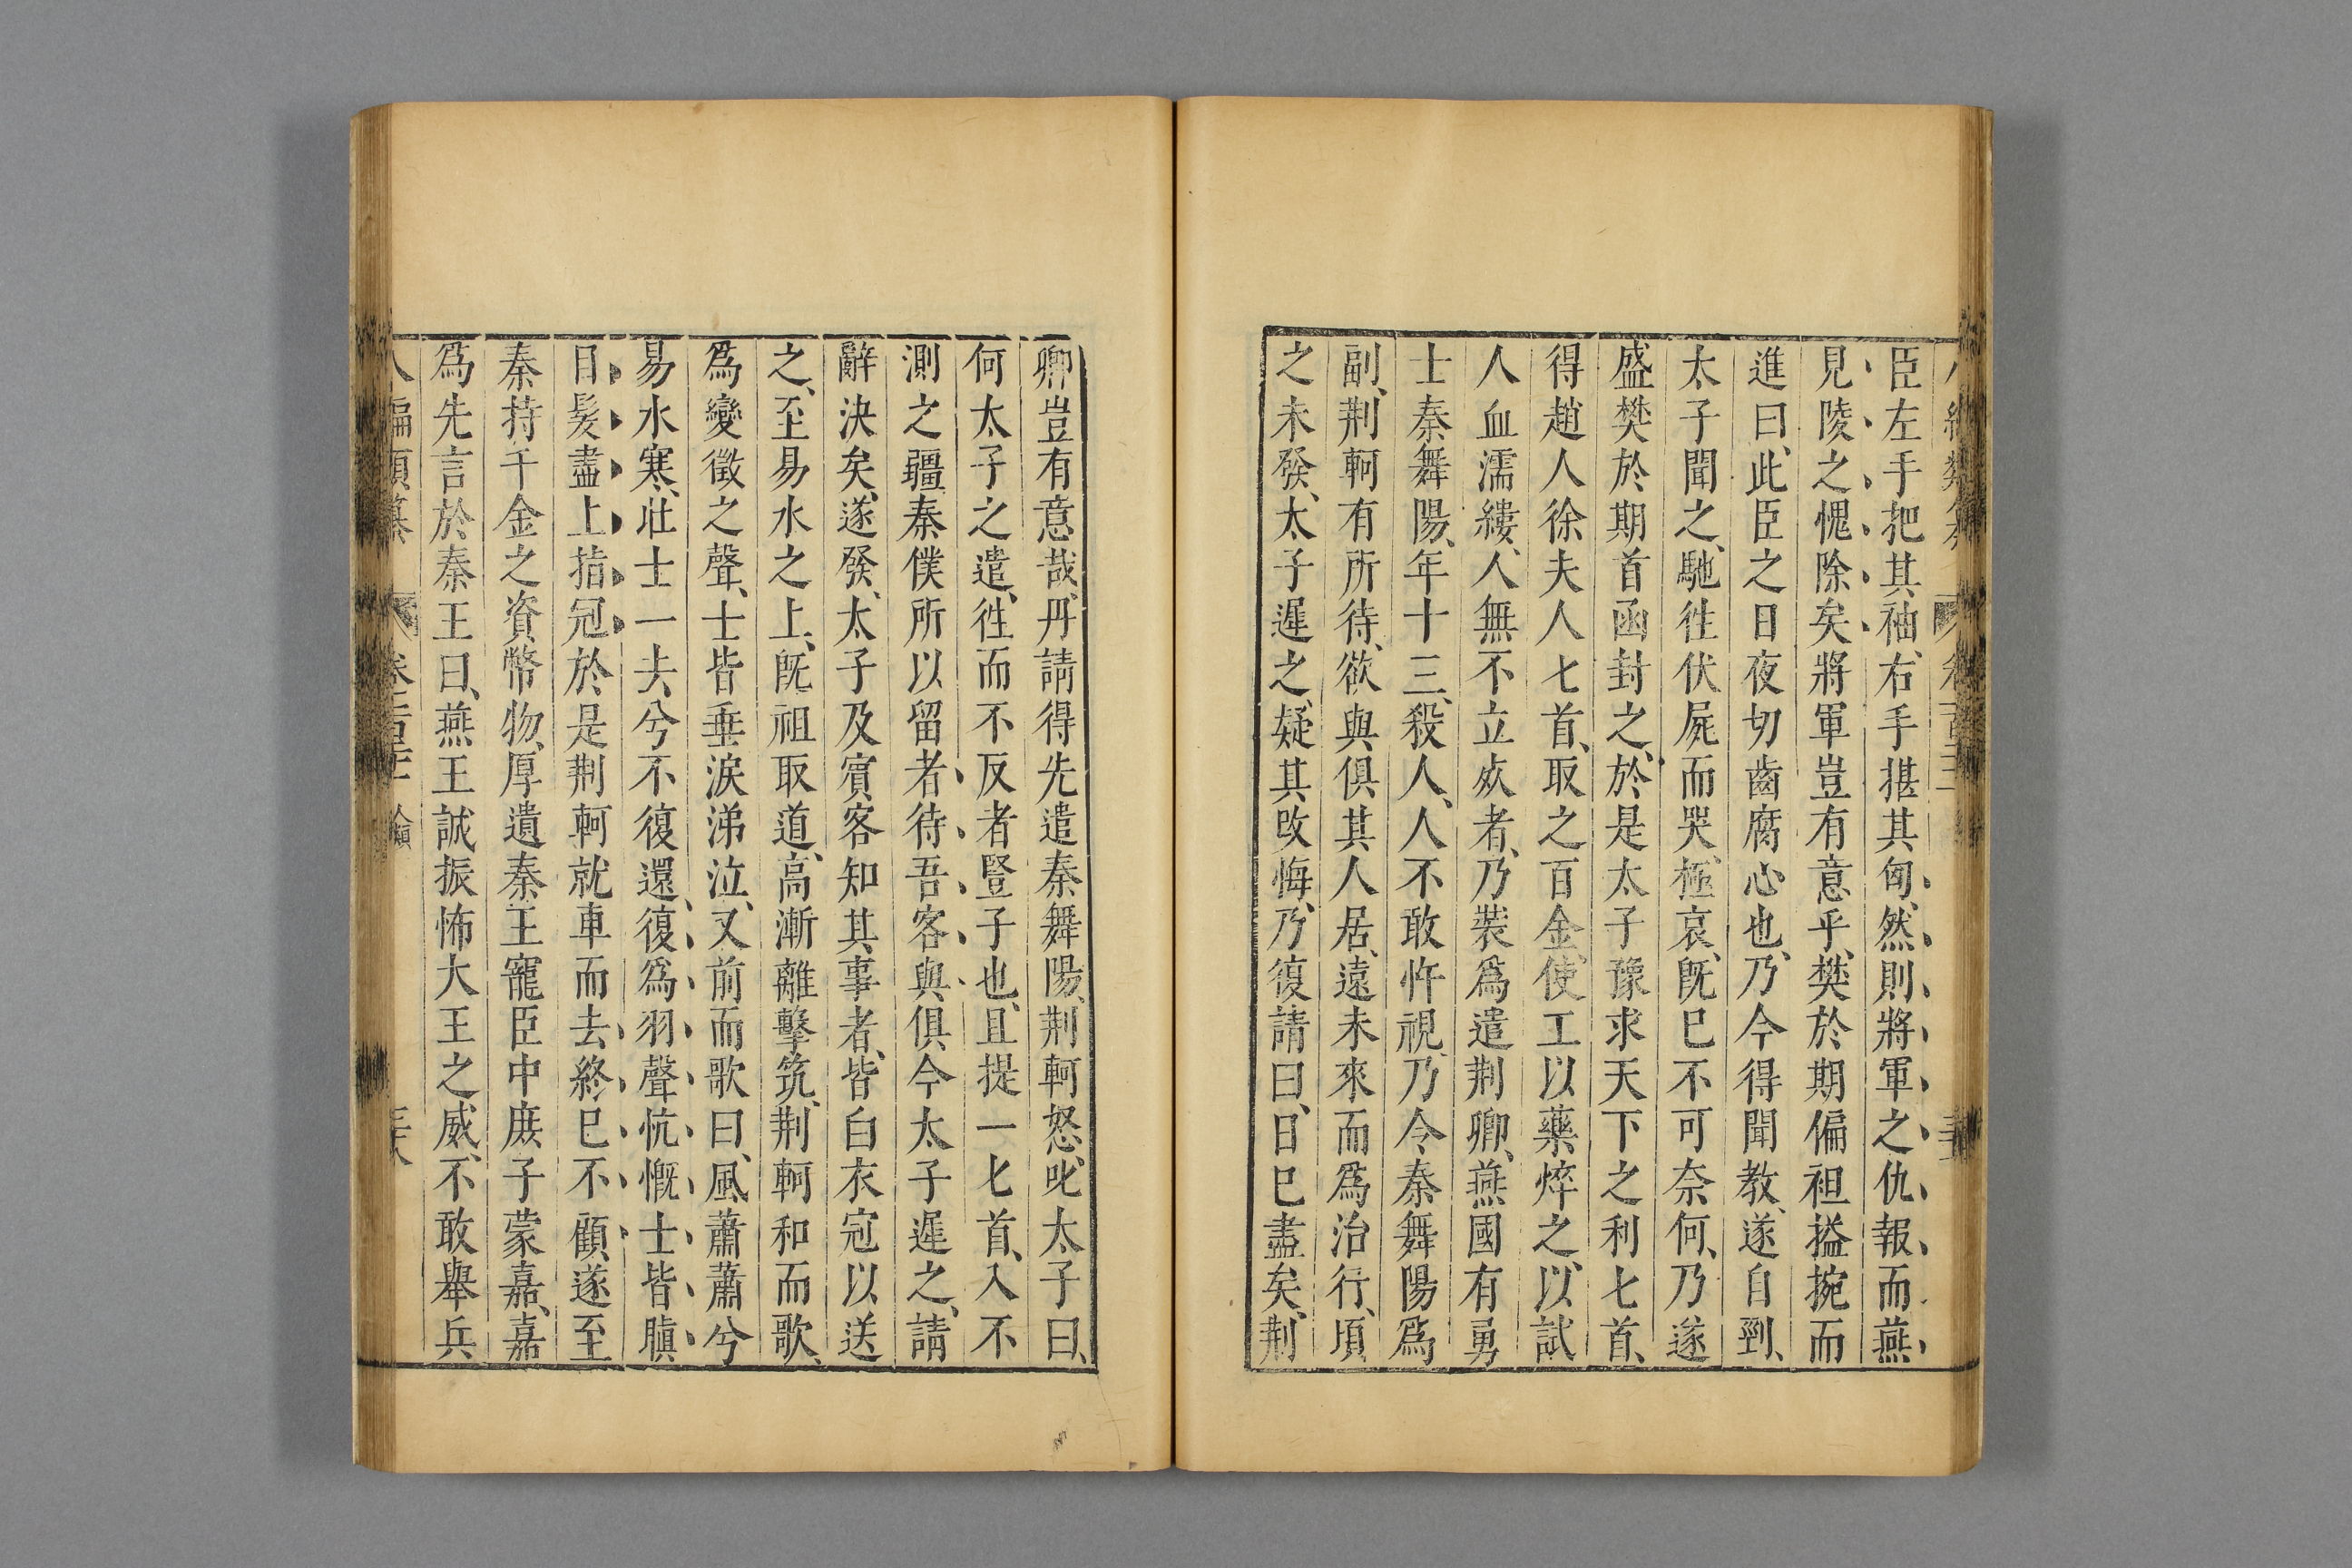 臣左手把其袖、右手揕其匈、然則將軍之仇報、而燕
見陵之愧除矣、將軍豈有意乎、樊於期偏袒搤捥而
進曰、此臣之日夜切齒腐心也、乃今得聞教、遂自剄、
太子聞之、馳徃伏屍而哭、極哀、旣已不可奈何、乃遂
盛樊於期首函封之、於是太子豫求天下之利匕首、
得趙人徐夫人匕首、取之百金、使工以藥焠之、以試
人血濡縷、人無不立㱙者、乃裝爲遣荆卿、燕國有勇
士秦舞陽、年十三、殺人、人不敢忤視、乃令秦舞陽爲
副、荆軻有所待、欲與俱其人居遠、未來、而爲治行、頃
之未發、太子遲之、疑其改悔、乃復請曰、日已盡矣、荆
卿豈有意哉、丹請得先遣秦舞陽、荆軻怒、叱太子曰、
何太子之遣、徃而不反者、豎子也、且提一匕首、入不
測之彊秦、僕所以留者、待吾客與俱、今太子遲之、請
辭決矣、遂發、太子及賓客知其事者、皆白衣冠以送
之、至易水之上、旣祖取道、高漸離擊筑、荆軻和而歌、
爲變徵之聲、士皆垂淚涕泣、又前而歌曰、風蕭蕭兮
易水寒、壯士一去兮不復還、復爲羽聲忼慨、士皆瞋
目、髮盡上指冠、於是荆軻就車而去、終已不顧、遂至
秦、持千金之資幣物、厚遺秦王寵臣中庶子蒙嘉、嘉
爲先言於秦王曰、燕王誠振怖大王之威、不敢舉兵